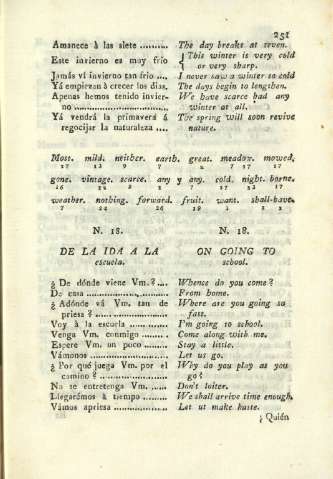 251
Amanece à las siete .......... The day breaks at seven.
Este invierno es muy frio { This winter is very cold
or very sharp.
Jamás ví invierno tan frio .... I never saw a winter so cold
Yá empiezan à crecer los dias. The days begin to lengthen.
Apenas hemos tenido invier- We have scarce had any
no .......................... winter at all.
Yá vendrá la primaverá á The spring will soon revive
regocijar la naturaleza .... nature.
Most. mild. neither. earth. great. meadow. mowed,
gone. vintage. scarce. any y any. cold. night. borne.
weather. nothing. forward. fruit. want. shall-have.
N. 18. N. 18.
DE LA IDA A LA ON GOING TO
escuela. school.
¿ De dónde viene Vm.? .... Whence do you come?
De casa ..................... From home.
¿ Adónde vá Vm. tan de Where are you going so
priesa? ..................... fast.
Voy à la escuela ........... I'm going to school.
Venga Vm. conmigo ....... Come along with me.
Espere Vm. un poco ....... Stay a little.
Vámonos ................... Let us go.
¿ Por qué juega Vm. por el Why do you play as you
camino? ................... go?
No se entretenga Vm. ...... Don't loiter.
Llegarémos à tiempo ....... We shall arrive time enough.
Vámos apriesa .............. Let us make haste.
¿ Quién